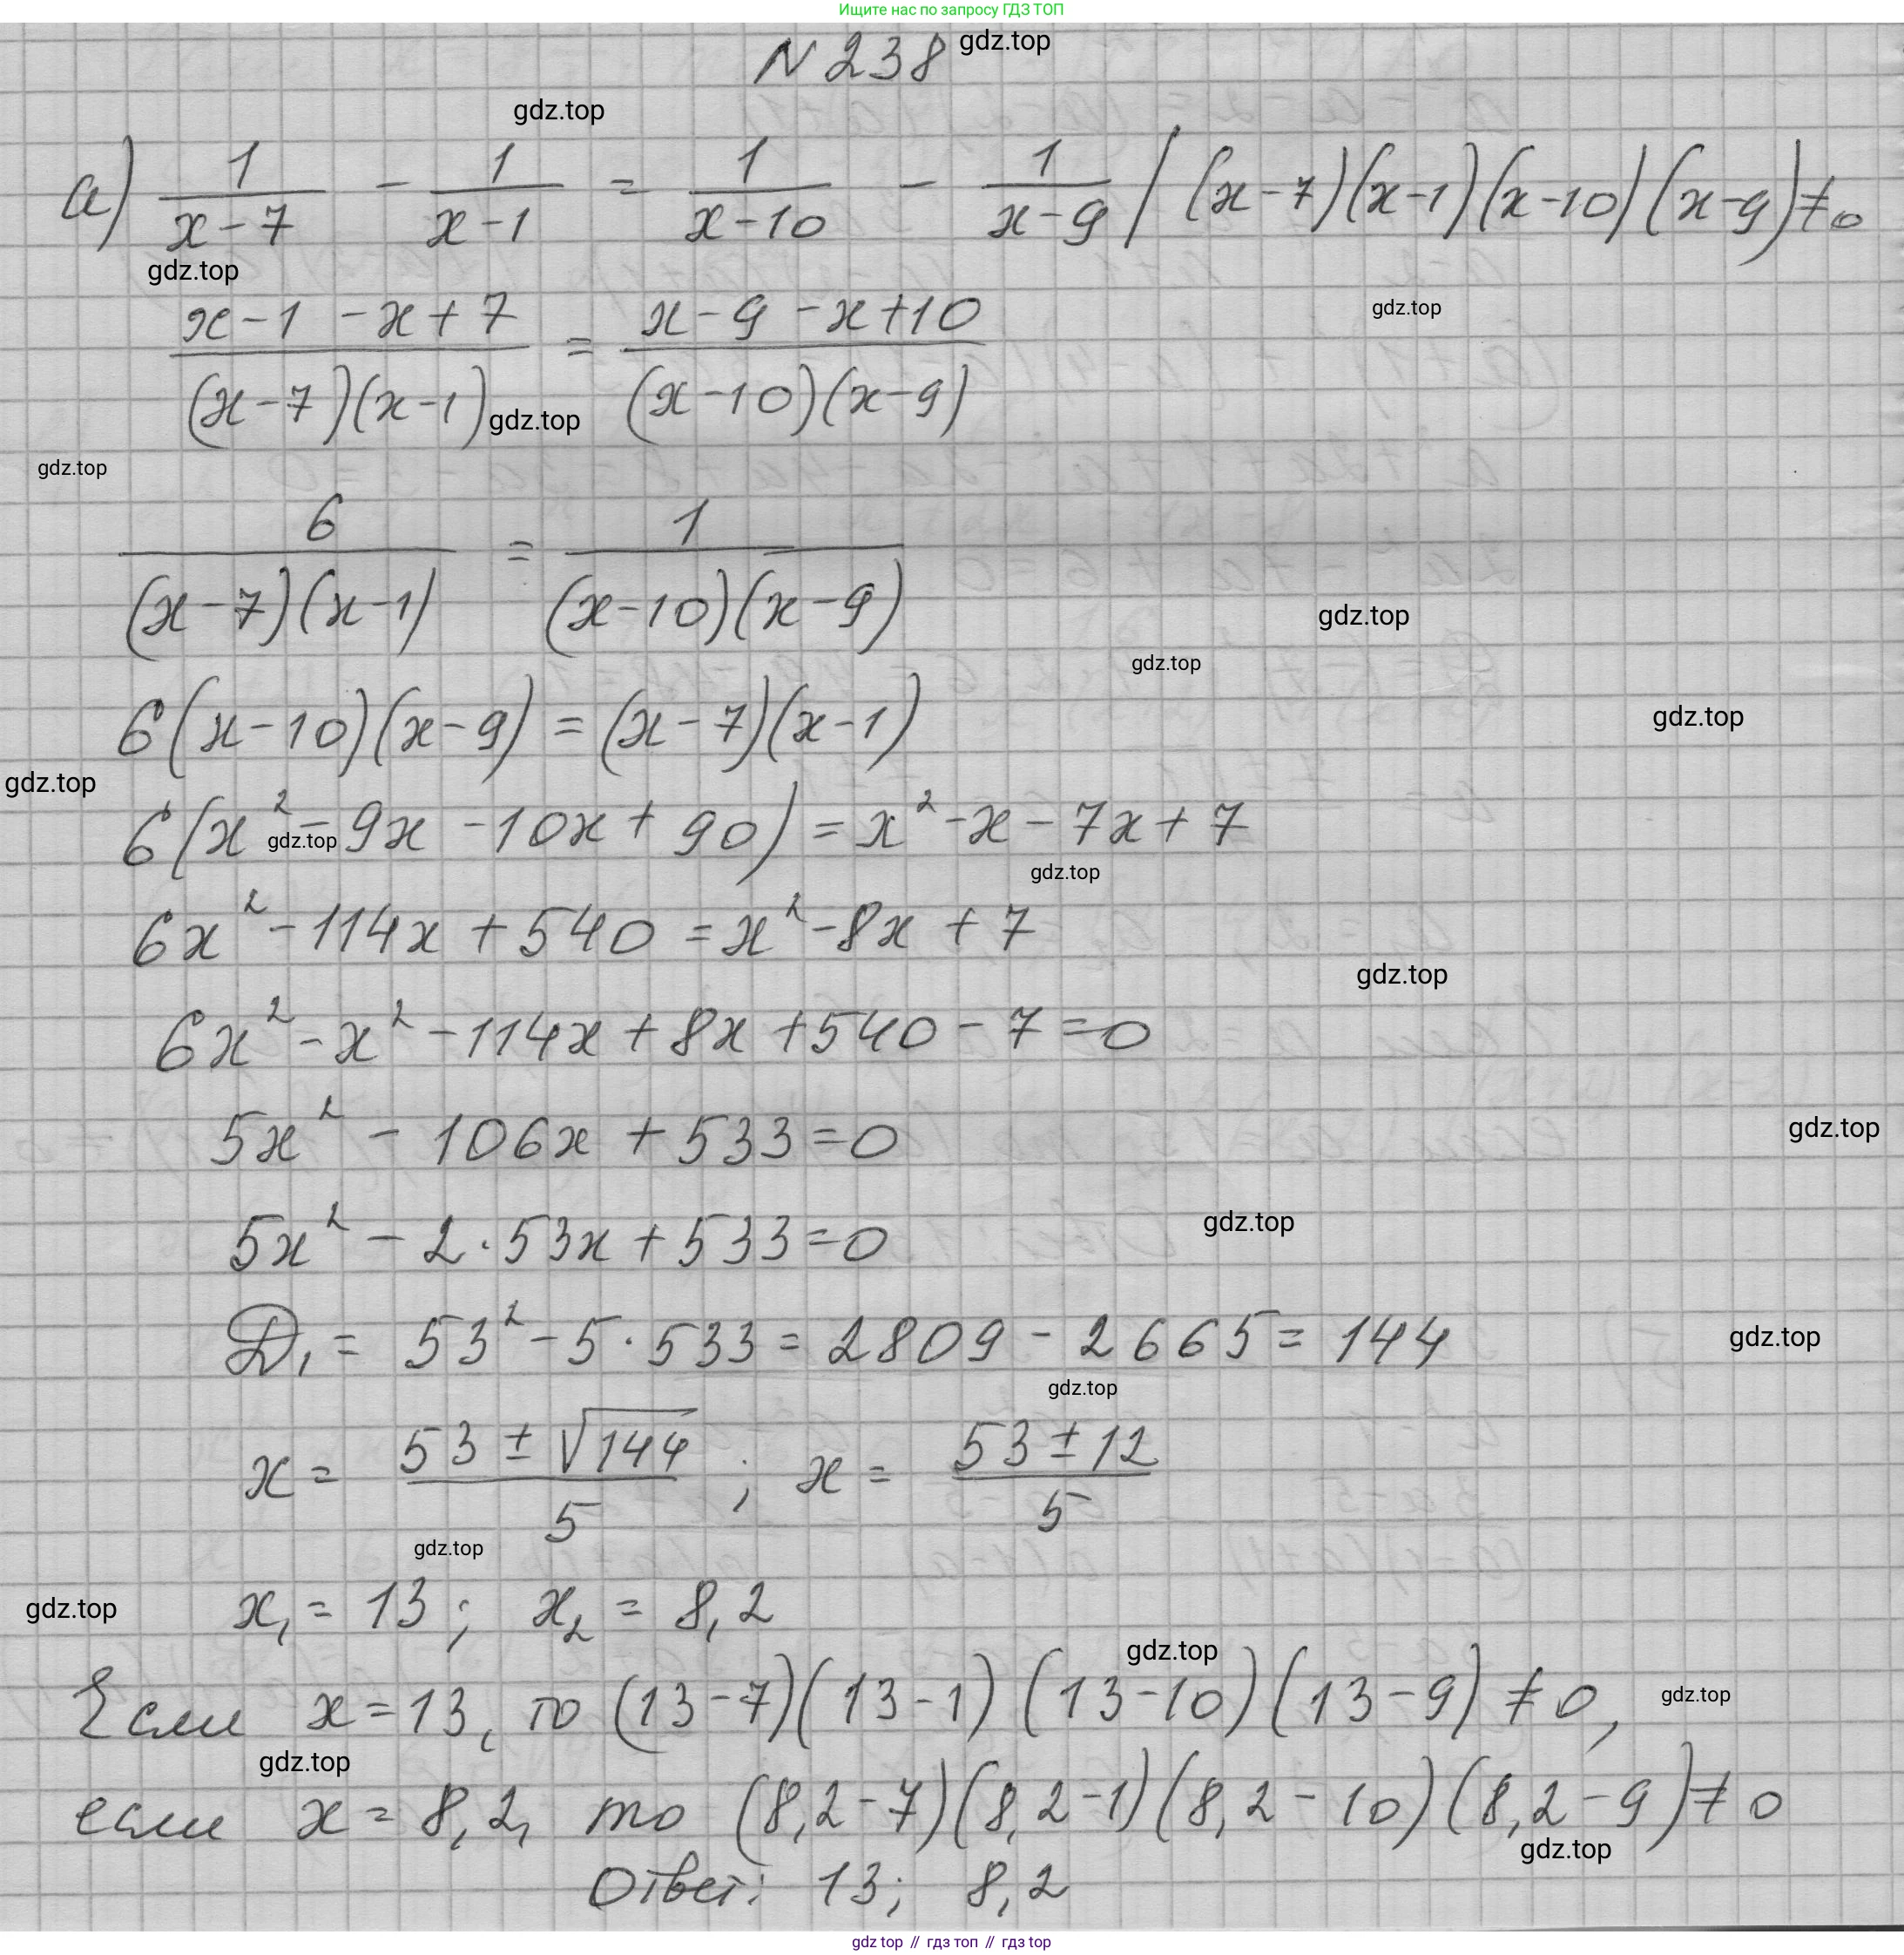 Ищите нас по запросу ГДЗ ТОП
N 238 gdz.top
gdz.top
а) 1/(x-7) - 1/(x-1) = 1/(x-10) - 1/(x-9) / (x-7)(x-1)(x-10)(x-9)≠0
gdz.top
gdz.top
(x-1-x+7)/((x-7)(x-1)) = (x-9-x+10)/((x-10)(x-9))
gdz.top
gdz.top
6/((x-7)(x-1)) = 1/((x-10)(x-9))
gdz.top
gdz.top
6(x-10)(x-9) = (x-7)(x-1)
gdz.top
gdz.top
6(x²-9x-10x+90) = x²-x-7x+7
gdz.top
gdz.top
6x²-114x+540 = x²-8x+7
gdz.top
6x²-x²-114x+8x+540-7=0
5x²-106x+533=0
gdz.top
5x²-2·53x+533=0
gdz.top
D₁ = 53²-5·533 = 2809-2665 = 144
gdz.top
gdz.top
x = (53±√144)/5 ; x = (53±12)/5
gdz.top
x₁ = 13; x₂ = 8,2
gdz.top
gdz.top
Если x=13, то (13-7)(13-1)(13-10)(13-9)≠0,
gdz.top
gdz.top
если x=8,2, то (8,2-7)(8,2-1)(8,2-10)(8,2-9)≠0
gdz.top
Ответ: 13; 8,2
gdz top // гдз топ // гдз top